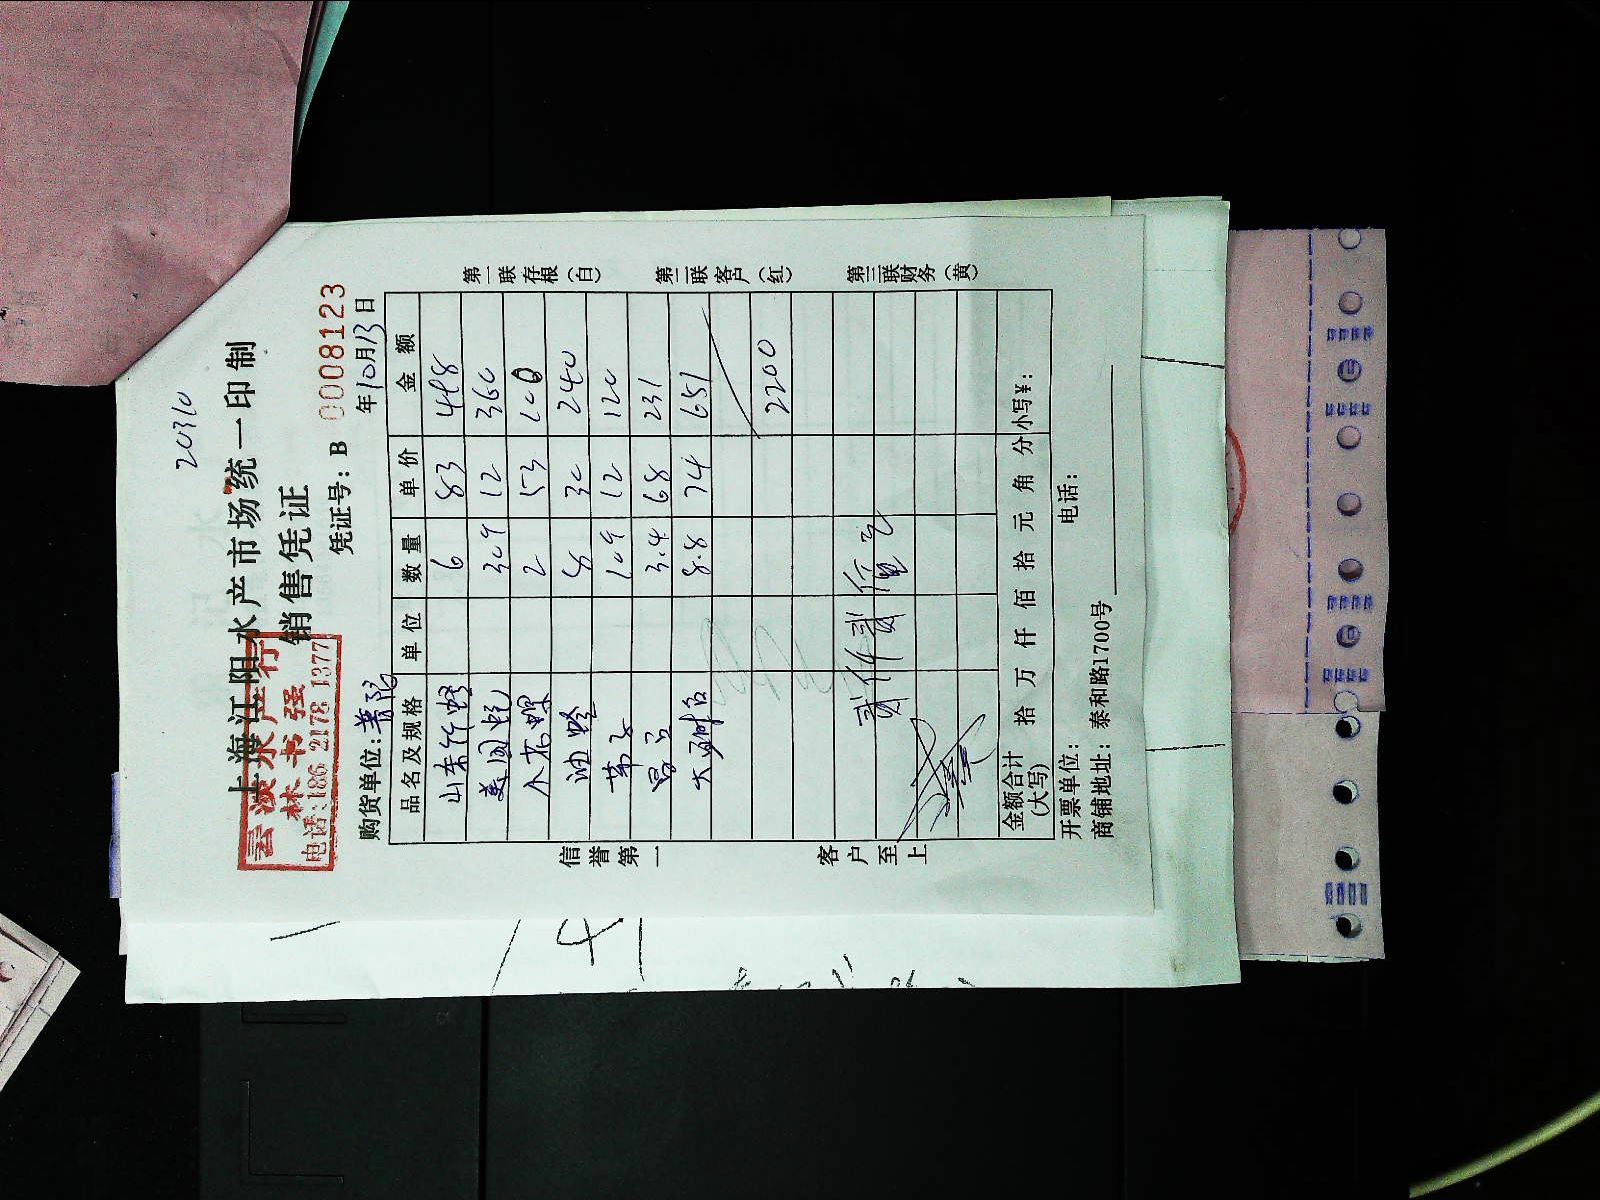 20310
上海江阳水产市场统一印制
销售凭证
云淡水产行
林书强
电话:186 2178 1377
凭证号: B 0008123
购货单位: 年10月13日
品名及规格 单位 数量 单价 金额
山东竹蛏 6 83 498
美国蚬 309 12 360
2 53 106
油蛤 8 30 240
109 12 120
3.4 68 231
8.8 74 651
2200
贰仟贰佰元
金额合计(大写) 拾 万 仟 佰 拾 元 角 分 小写¥:
开票单位: 电话:
商铺地址: 泰和路1700号
信誉第一
客户至上
第一联存根(白)
第二联客户(红)
第三联财务(黄)